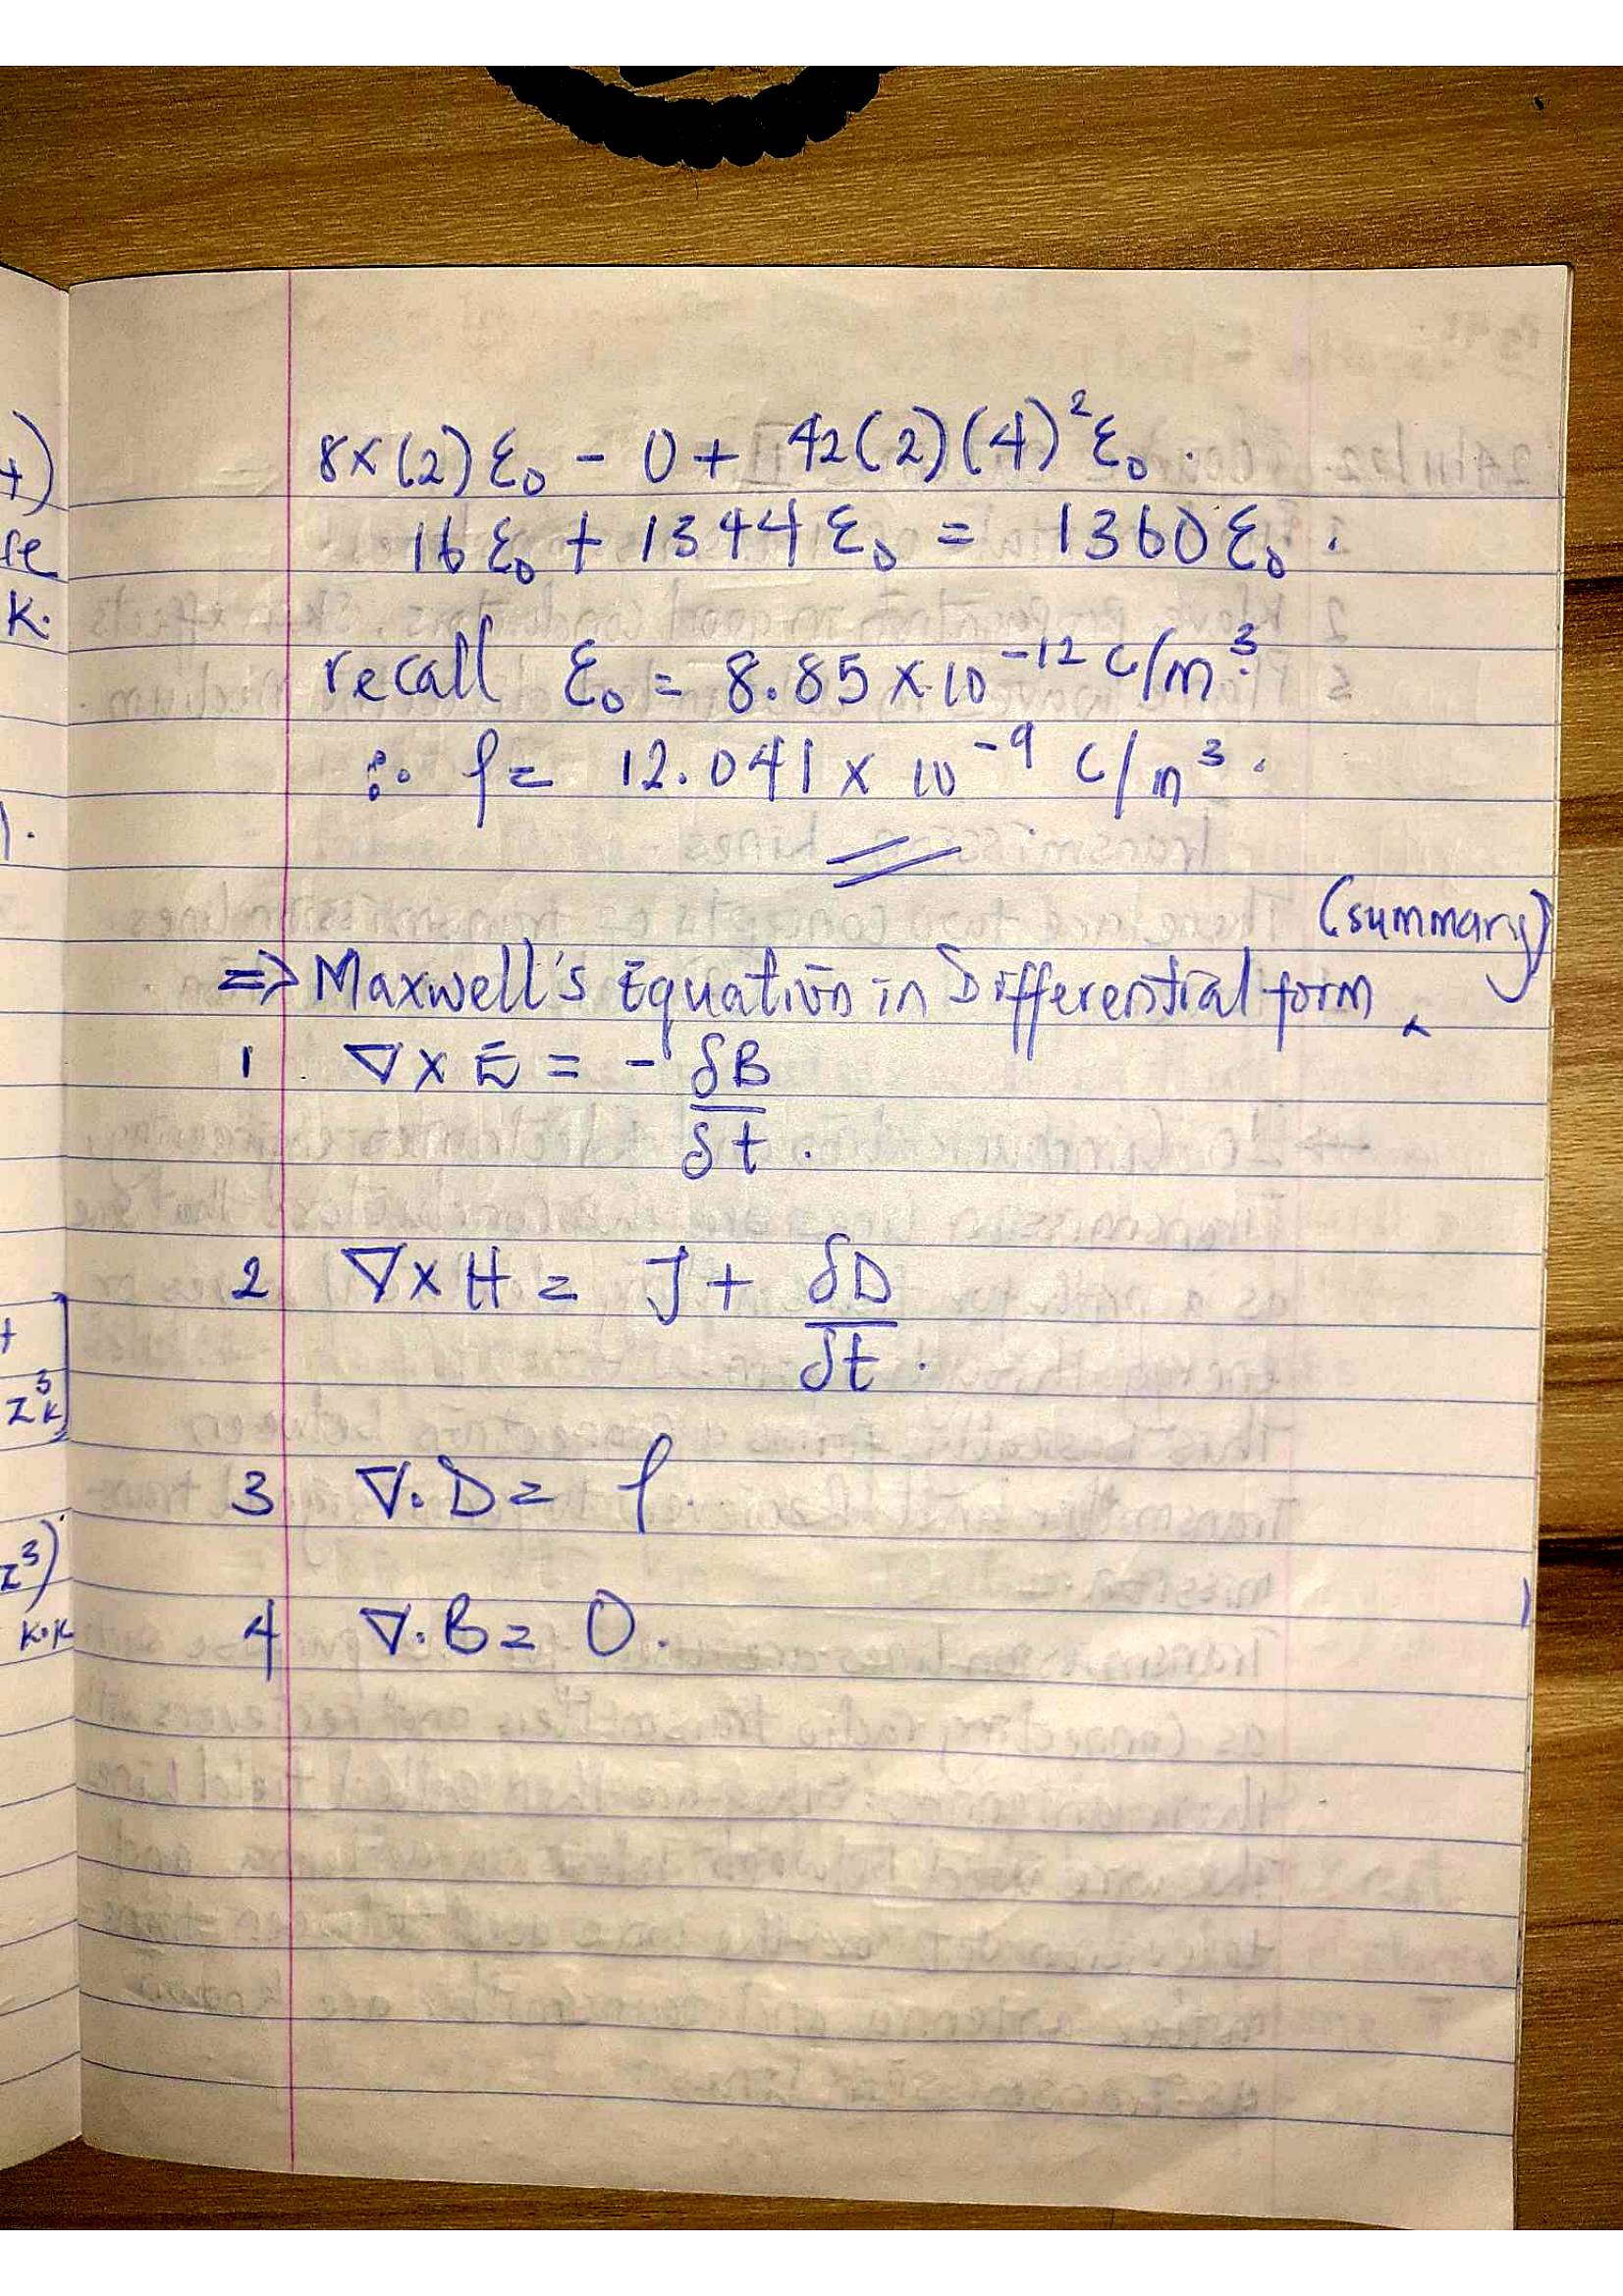 8x(2)ε₀ - 0 + 42(2)(4)²ε₀.
16ε₀ + 1344ε₀ = 1360ε₀.
recall ε₀ = 8.85 x 10⁻¹² C/m³.
∴ ρ = 12.041 x 10⁻⁹ C/m³.
(summary)
=> Maxwell's Equation in Differential form.
1. ∇ x E̅ = - δB/δt.
2 ∇ x H = J + δD/δt.
3 ∇.D = ρ.
4 ∇.B = 0.